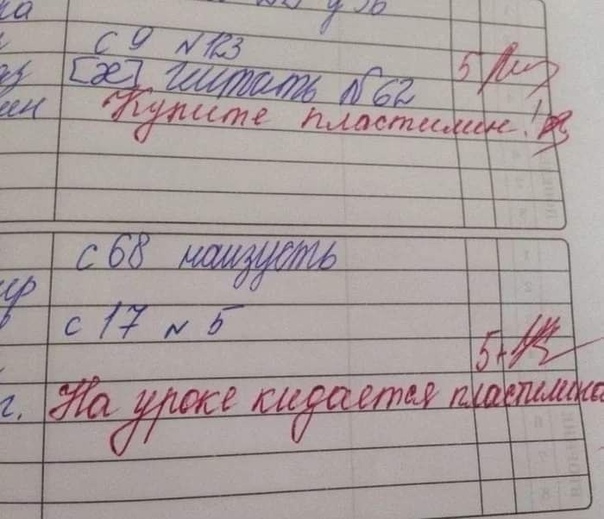 с 9 N123
[æ] читать №62 5
Купите пластилин!
с 68 наизусть
с 17 N 5
5+
г. На уроке кидается пластилино